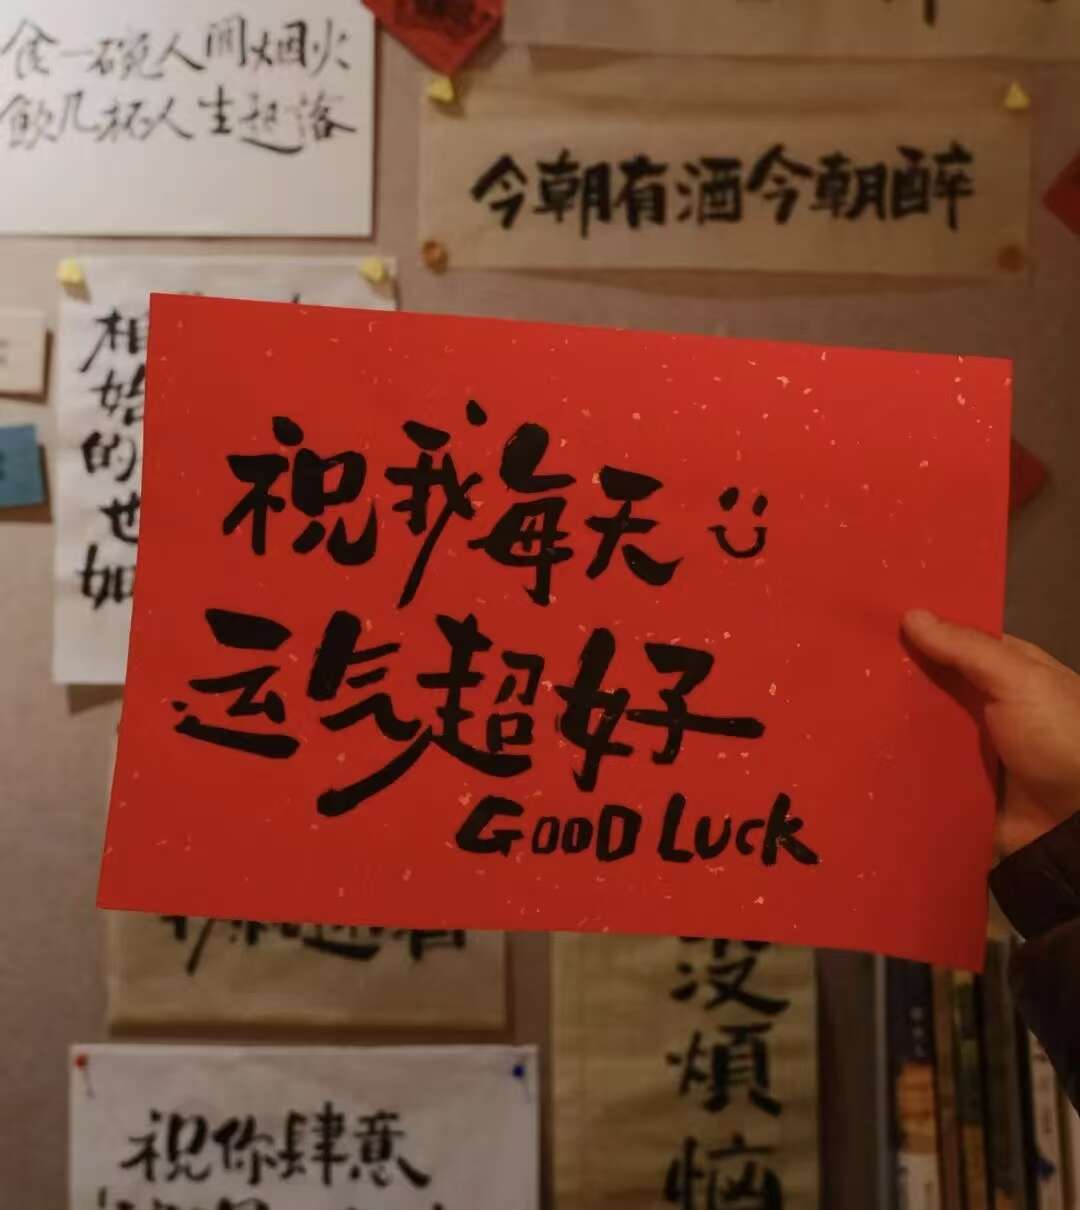 食一碗人间烟火
飲几杯人生起落
今朝有酒今朝醉
相
始
的
也
如
祝我每天
运气超好
GOOD LUCK
没
煩
惱
祝你肆意